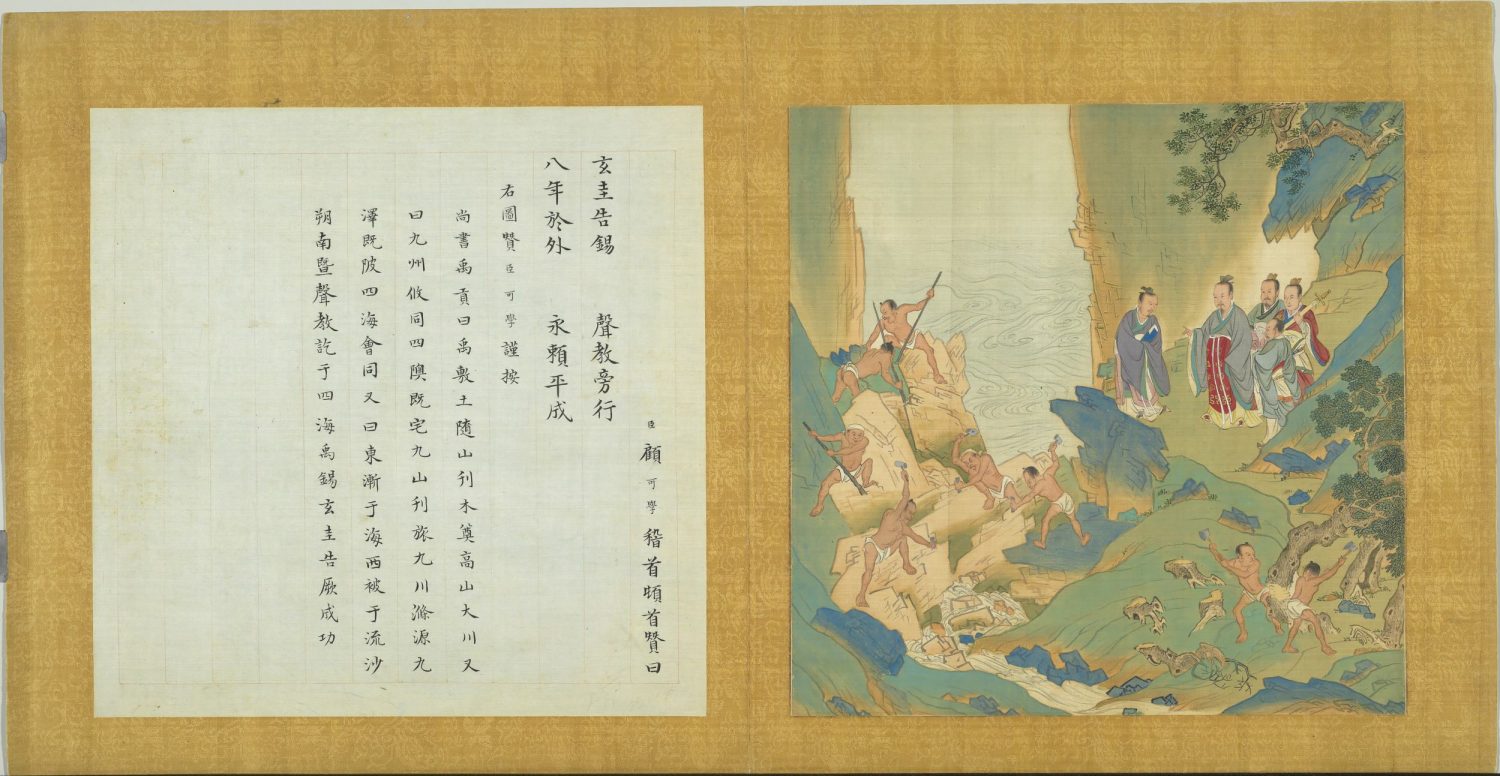 臣顧可學稽首頓首贊曰
玄圭告錫 聲教旁行
八年於外 永賴平成
右圖贊臣可學謹按
尚書禹貢曰禹敷土隨山刋木奠高山大川又
曰九州攸同四隩既宅九山刋旅九川滌源九
澤既陂四海會同又曰東漸于海西被于流沙
朔南暨聲教訖于四海禹錫玄圭告厥成功